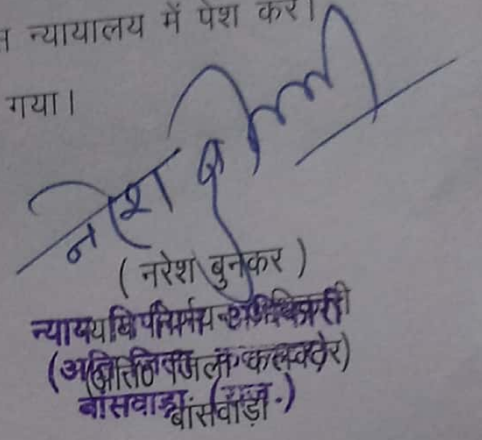 न्यायालय में पेश करें।
गया।
नरेश
( नरेश बुनकर )
न्याय निर्णयन अधिकारी
(अति. जिला कलक्टर)
बांसवाड़ा (राज.)
बांसवाड़ा